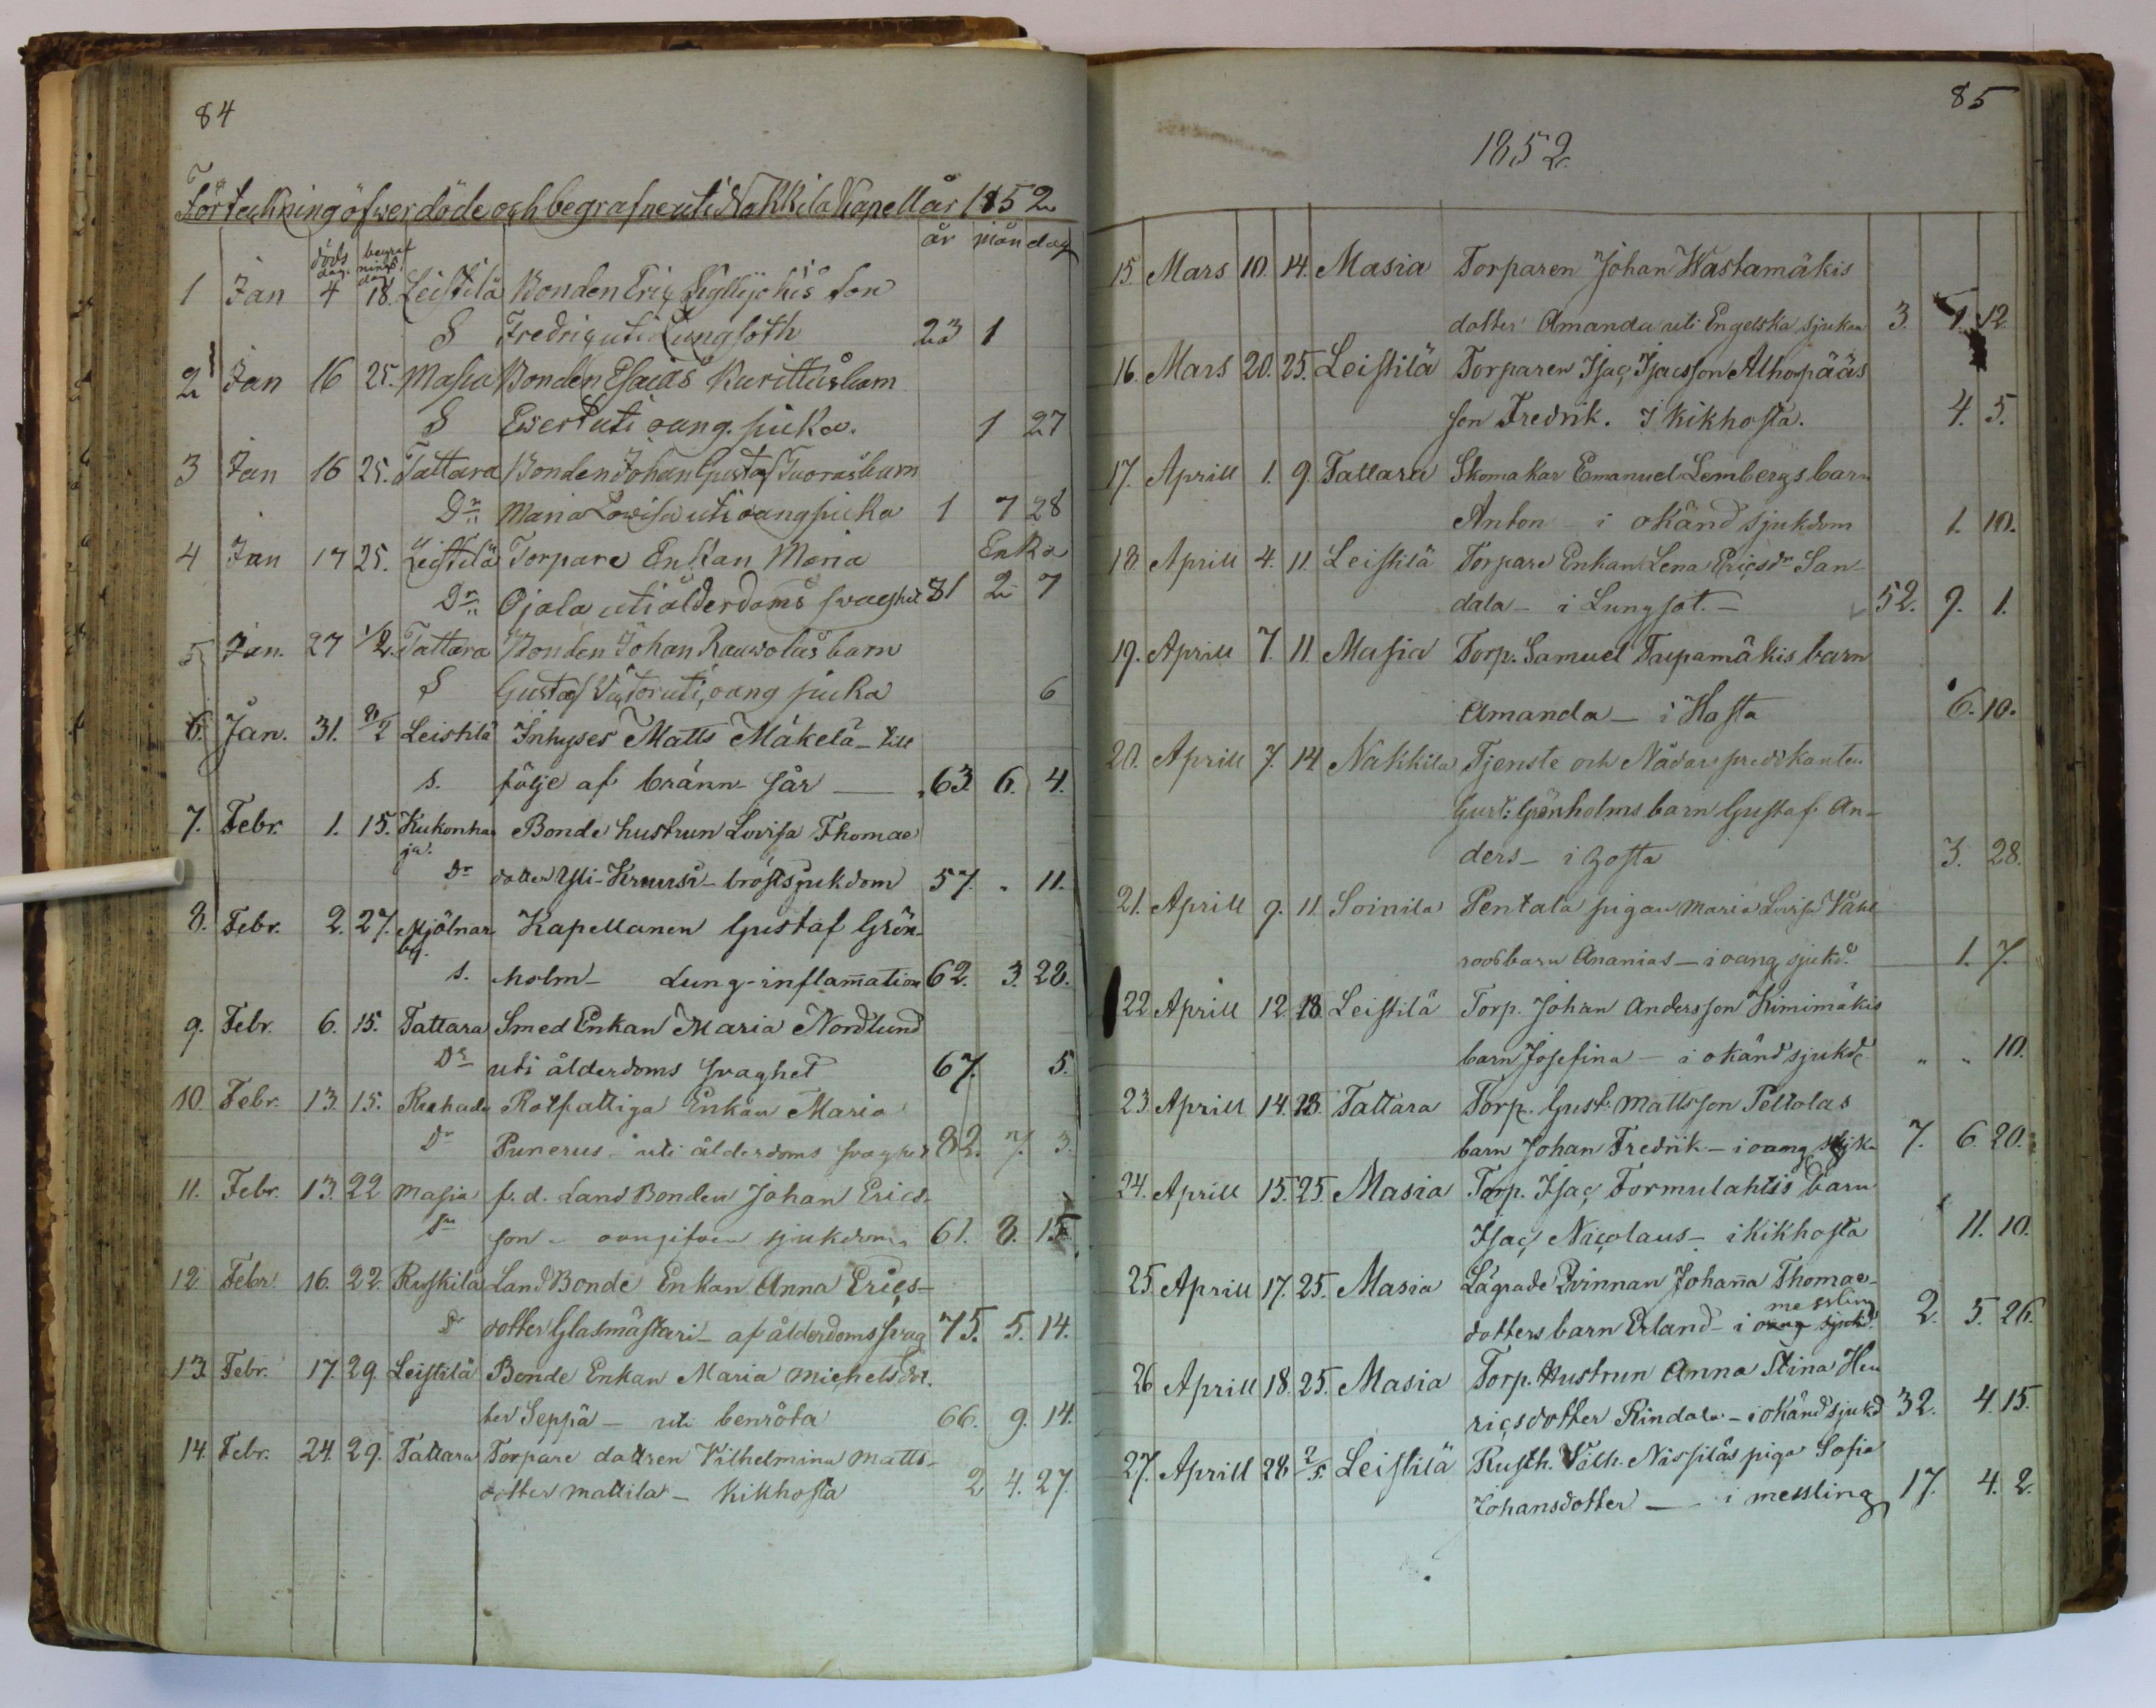 84
Förteckning öfwer döde och begrafne uti Nakkila Kapell år 1852
döds dag. begrafnings dag år mån dag
1 Jan 4 18. Leistilä Bonden Eric son
S Fredric uti Lungsoth 23 1
2 Jan 16 25. Masia Bonden Esaias Kurittus barn
S Ewert uti oang. siuka. 1 27
3 Jan 16 25. Tattara Bonden Johan Gustaf Tuoras barn
Dr Maria Lowisa uti oang siuka 1 7 28
4 Jan 17 25. Leistilä Torpare Enkan Maria Enka
Dr Ojala uti ålderdoms svaghet 81 2 7
5 Jan. 27 1/2. Tattara Bonden Johan Rauwolas barn
S Gustaf Victor uti, oang siuka 6
6. Jan. 31. 8/2 Leistilä Inhyses Matts Mäkelä - till
s. följe af bränn-sår — 63. 6. 4.
7. Febr. 1. 15. Kukonhar Bonde hustrun Lovisa Thomae
ja. Dr dotter Yli-Krumsi - bröstsjukdom 57. " 11.
8. Febr. 2. 27. Mjölnar Kapellanen Gustaf Grön-
by. s. holm - Lung-inflam̄ation 62. 3. 28.
9. Febr. 6. 15. Tattara Smed Enkan Maria Nordlund
Dr uti ålderdoms svaghet 67. 5.
10. Febr. 13. 15. Ruhade Rotfattiga Enkan Maria
Dr Punerus - uti ålderdoms svaghet 82. 7. 3.
11. Febr. 13. 22 Masia f. d. Land Bonden Johan Erics-
son - oangifven sjukdom 61. 8. 15.
12. Febr. 16. 22. Ruskila Land Bonde Enkan Anna Erics-
Dr dotter Glasmästari - af ålderdoms svag 75. 5. 14.
13. Febr. 17. 29. Leistilä Bonde Enkan Maria Michelsdot.
ter Seppä - uti benröta 66. 9. 14.
14. Febr. 24. 29. Tattara Torpare dottren Vilhelmina Matts-
dotter Mattila - Kikhosta 2 4. 27.
85
1852.
15. Mars 10. 14. Masia Torparen Johan Wastamäkis
dotter Amanda uti Engelska sjukan 3. 1. 12.
16. Mars 20. 25. Leistilä Torparen Isac Isacsson Alhonpääs
son Fredrik. i Kikhosta. 4. 5.
17. Aprill 1. 9. Tattara Skomakar Emanuel Lembergs barn
Anton - i okänd sjukdom 1. 10.
18. Aprill 4. 11. Leistilä Torpare Enkan Lena Ericsdr San-
dala - i Lungsot. - 52. 9. 1.
19. Aprill 7. 11. Masia Torp. Samuel Taipamäkis barn
Amanda - i Hosta 6. 10.
20. Aprill 7. 14. Nakkila Tjenste och Nådårspredikanten
Gust: Grönholms barn Gustaf An-
ders - i hosta 3. 28.
21. Aprill 9. 11. Soinila Pentala pigan Maria Lovisa Wähä
roos barn Ananias - i oang sjukd. 1. 7.
22 Aprill 12 18. Leistilä Torp. Johan Andersson Kimimäkis
barn Josefina - i okänd sjukd. " " 10.
23. Aprill 14. 18. Tattara Torp. Gust: Mattsson Peltolas
barn Johan Fredrik - i oang sjuk. 7. 6. 20.
24. Aprill 15. 25. Masia Torp. Isac Tormulahtis barn
Isac Nicolaus - i Kikhosta 11. 10.
25. Aprill 17. 25. Masia Lägrade Qvinnan Johan̄a Thomae-
dotters barn Erland - i oang sjukd. messling 2. 5. 26.
26 Aprill 18. 25. Masia Torp. Hustrun Anna Stina Hen
ricsdotter Rindala - i okänd sjukd 32. 4. 15.
27. Aprill 28 2/5. Leistilä Rusth. Vilh. Nissiläs piga Sofia
Johansdotter — i messling 17. 4. 2.